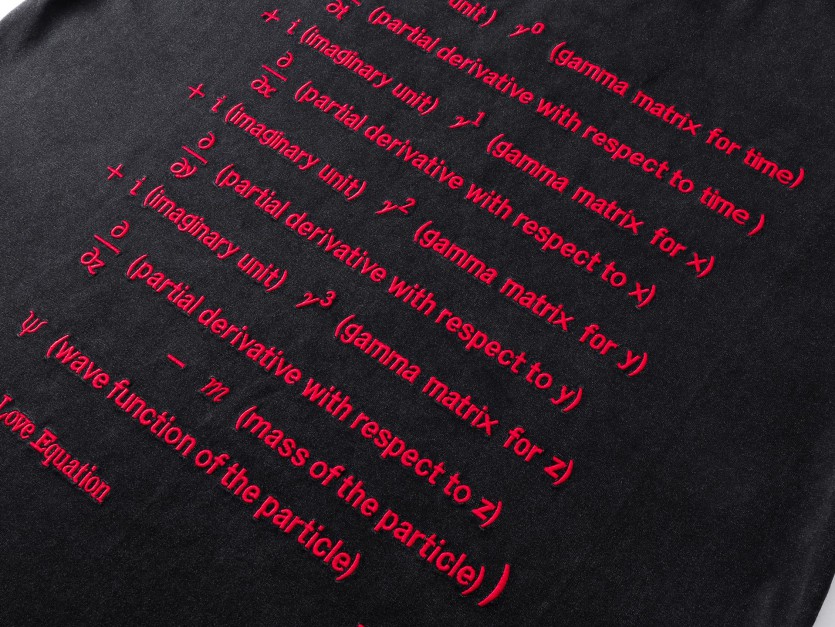 unit) γ⁰ (gamma matrix for time)
∂/∂t (partial derivative with respect to time )
+ i (imaginary unit) γ¹ (gamma matrix for x)
∂/∂x (partial derivative with respect to x)
+ i (imaginary unit) γ² (gamma matrix for y)
∂/∂y (partial derivative with respect to y)
+ i (imaginary unit) γ³ (gamma matrix for z)
∂/∂z (partial derivative with respect to z)
− m (mass of the particle) )
ψ (wave function of the particle)
Love Equation